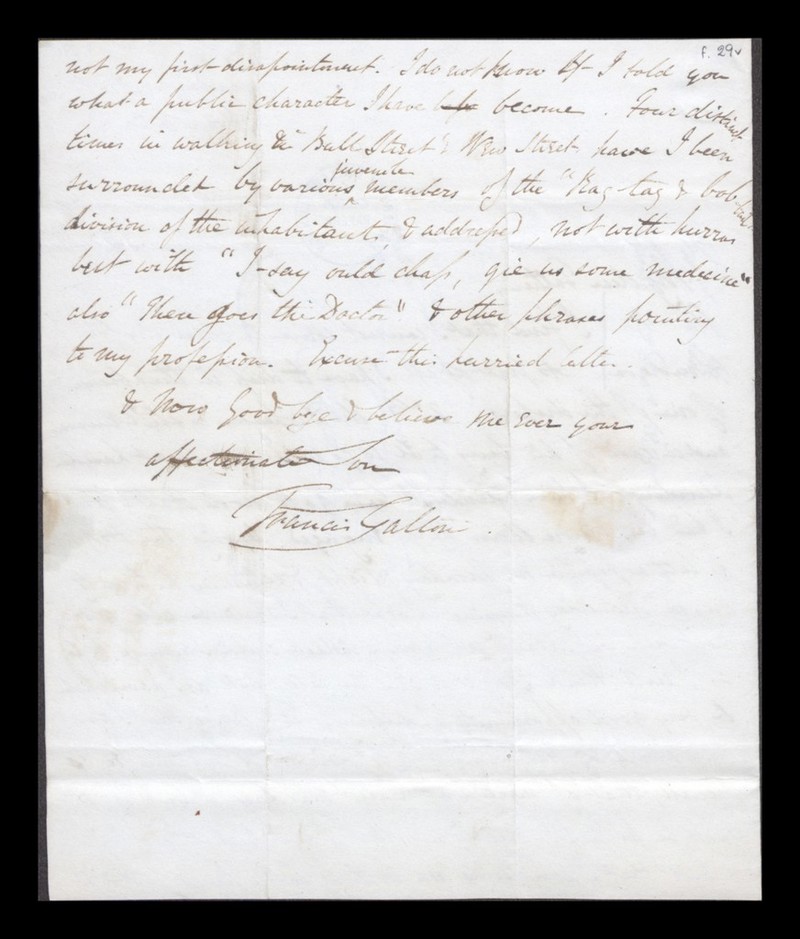 f. 29v
not my first disapointment. I do not know if I told you
what a public character I have become. Four distinct
times in walking in Bull Street & New Street have I been
surrounded by various juvenile members of the "Rag-tag & bob tail"
division of the inhabitants, & addressed, not with hurras
but with "I-say ould chap, gie us some medecine"
also "there goes the Doctor" & other phrases pointing
to my profession. Excuse this hurried letter.
& now Good bye & believe me ever your
affectionate Son
Francis Galton.